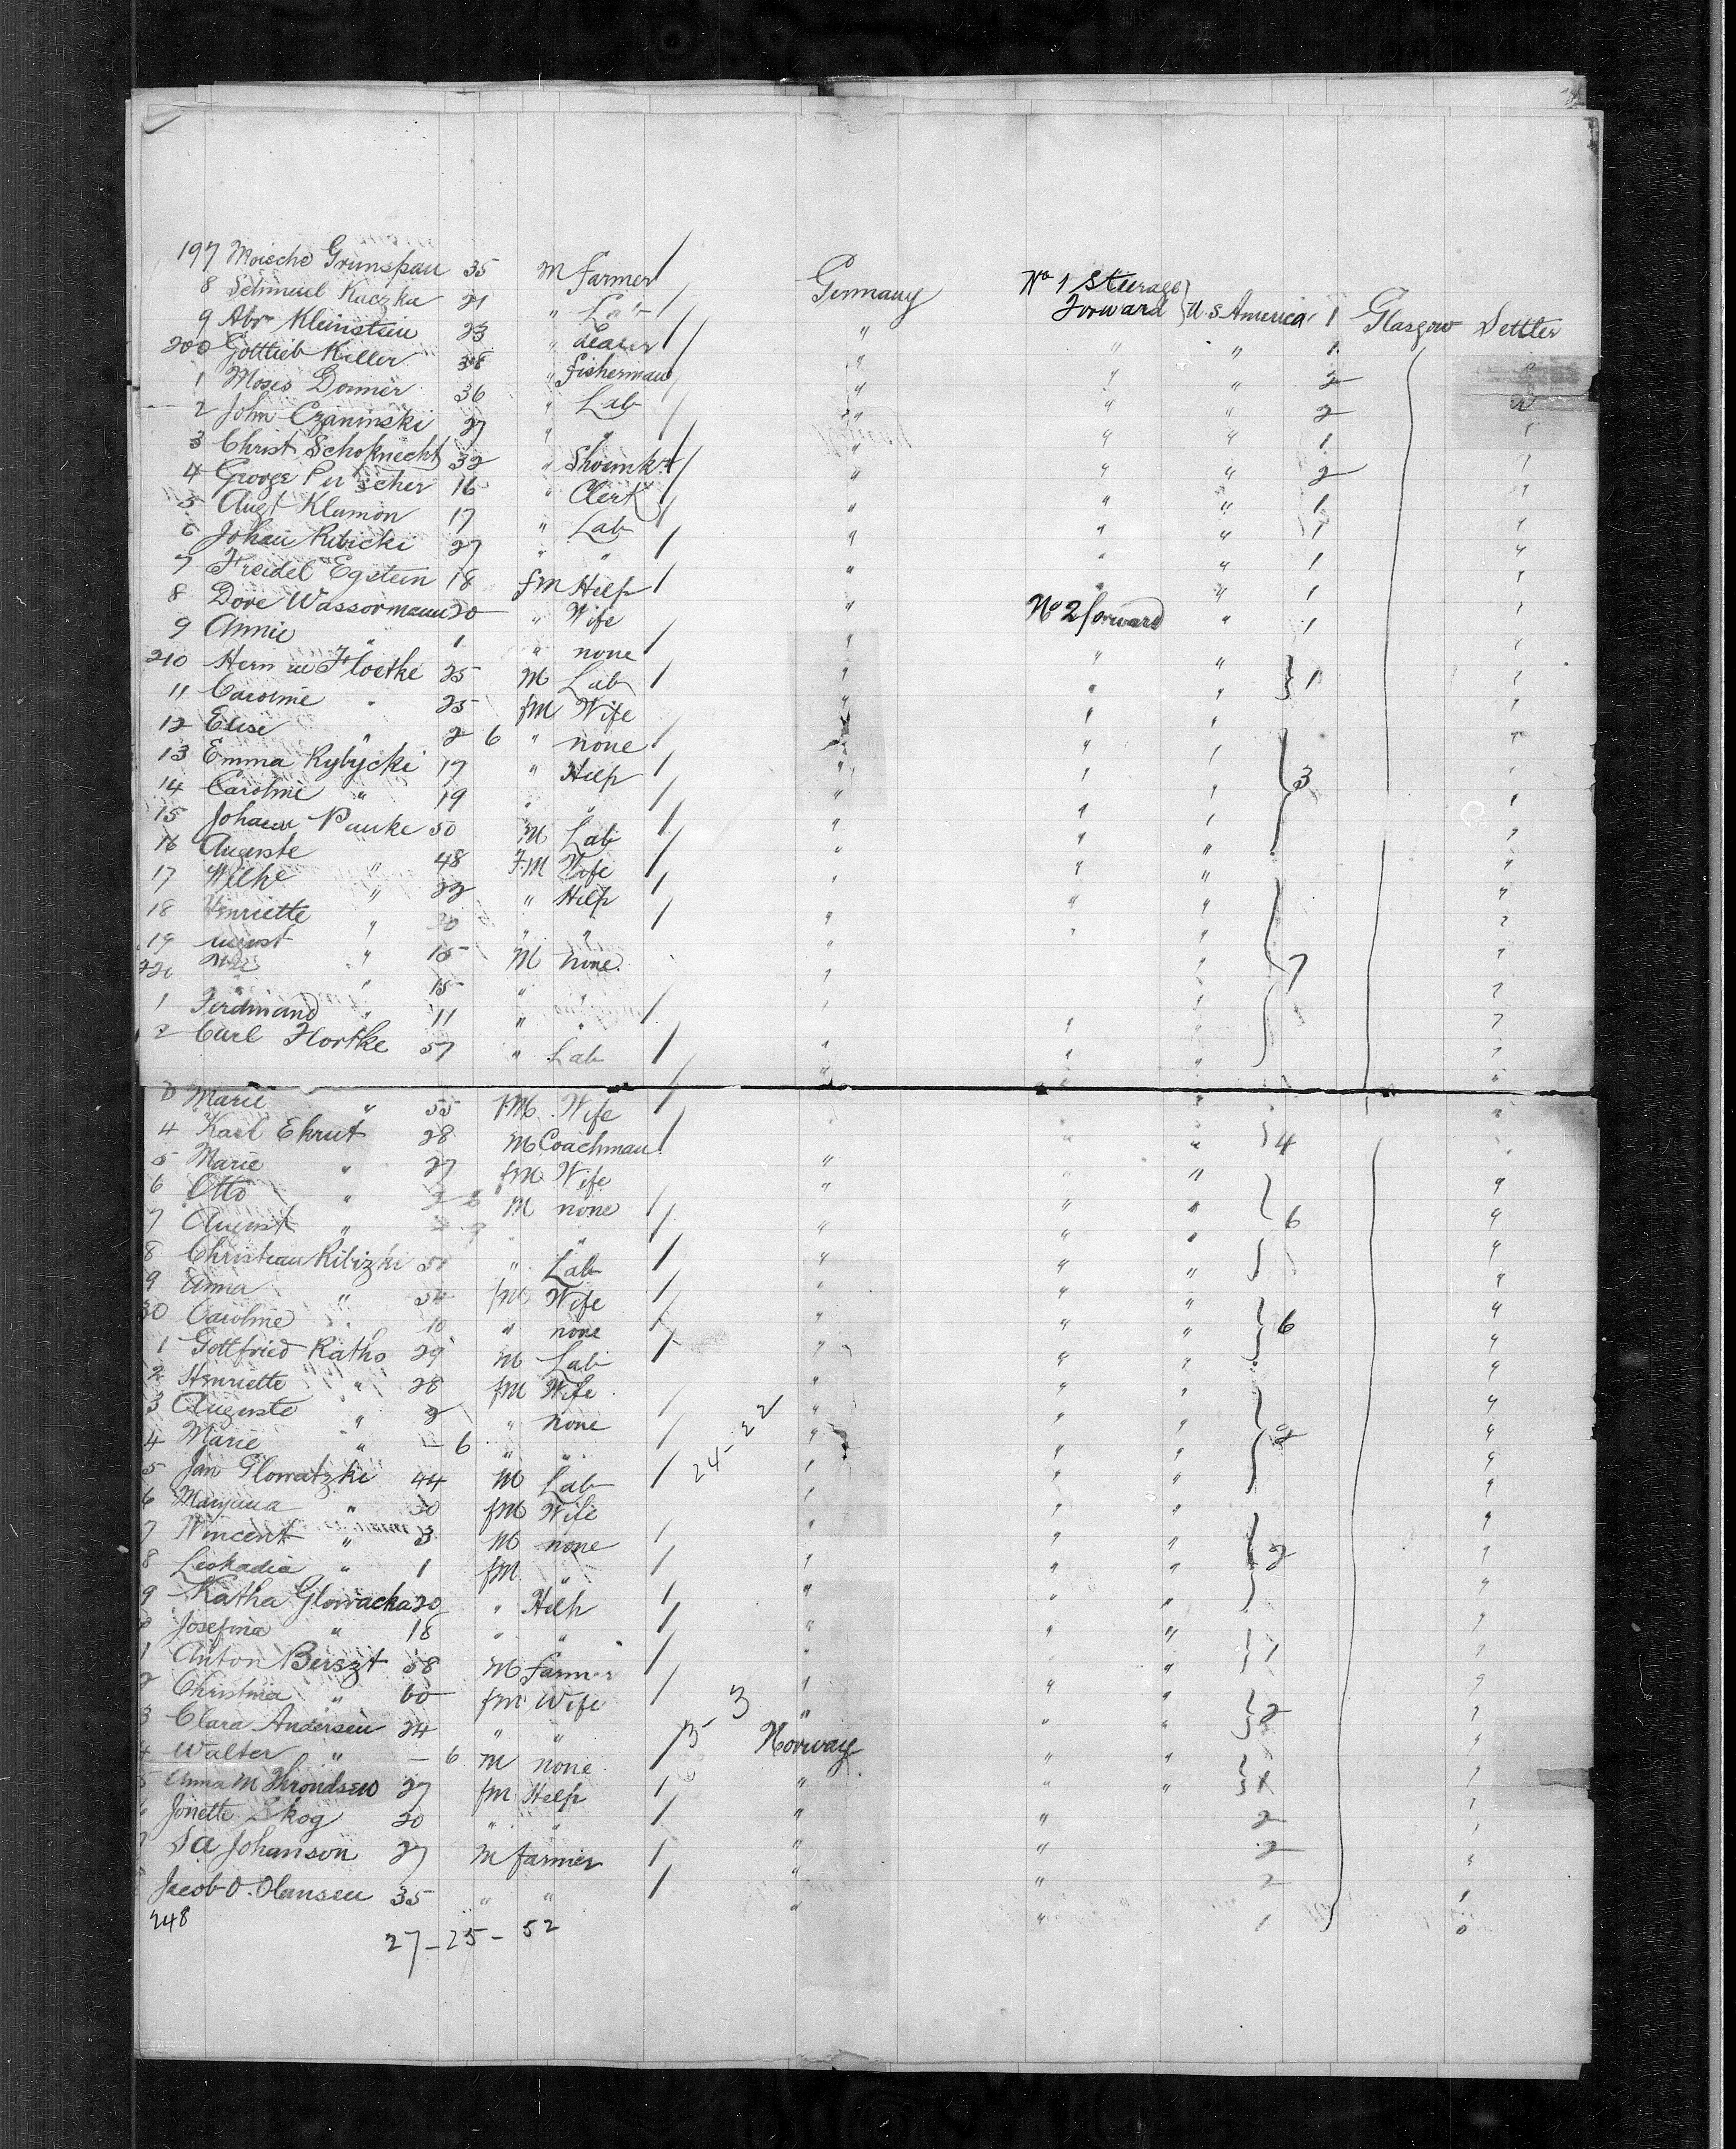 197 Moische Grunspan 35 M Farmer Germany No 1 Steerage Forward } U.S America 1 Glasgow Settler
8 Schmuel Kaczka 21 " Lab " " " 1
9 Abrm Kleinstein 23 " dealer " " " 2
200 Gottlieb Keller 38 " fisherman " " " 2
1 Moses Donner 36 " Lab " " " 1
2 John Czaninski 27 " " " " " 2
3 Christ Schofknecht 32 " Shoemkr " " " 1
4 George 16 " Clerk " " " 1
5 Augt Klamon 17 " Lab " " " 1
6 Johan Ribicki 27 " " " " " 1
7 Freidel Egstein 18 fm Help " No 2 forward " 1
8 Dore Wassermann 20 " Wife " " "
9 Annie " 1 " none " " " } 1
210 Floetke 25 M Lab " " "
11 Caroline " 25 fm Wife " " "
12 Elise " 2 6 " none " " " } 3
13 Emma Rybycki 17 " Help " " "
14 Caroline " 19 " " " " "
15 Johann Pauke 50 M Lab " " "
16 Auguste " 48 F.M Wife " " "
17 Wilhe " 22 " Help " " "
18 Henriette " 20 " " " " "
19 August " 15 M none " " " 7
220 " 15 " " " " "
1 Ferdinand " 11 " " " " "
2 Carl Flortke 57 " Lab " " "
3 Marie " 55 fM Wife " " " } 4
4 Karl Ekrut 28 M Coachman " " "
5 Marie " 27 fm Wife " " "
6 Otto " M none " " " 6
7 August " " " " " "
8 Christian Ribizki " Lab " " "
9 Anna " 54 fm Wife " " "
30 Caroline " 10 " none " " " } 6
1 Gottfried Raths 29 M Lab " " "
2 Henriette " 28 fm Wife " " "
3 Auguste " 2 " none 24-22 " " " 2
4 Marie " - 6 " " " " "
5 Jan Glowatzki 44 M Lab " " "
6 Maryanna " 30 fm Wife " " "
7 Vincent " 3 M none " " " } 2
8 Leokadia " 1 fm " " " "
9 Katha Glowacka 20 " Help " " "
Josefina " 18 " " " " " } 1
1 Anton Berszt 58 M farmer " " "
2 Christina " 60 fm Wife 3 " " " } 2
3 Clara Andersen 24 " " Norway " "
4 Walter " - 6 M none " " "
5 Anna M Throndsen 27 fm Help " "
6 Jonette Skog 20 " " " " 2
Johanson 27 M farmer " " 2
Jacob O. Hansen 35 " " " " 1
248
27-25-52